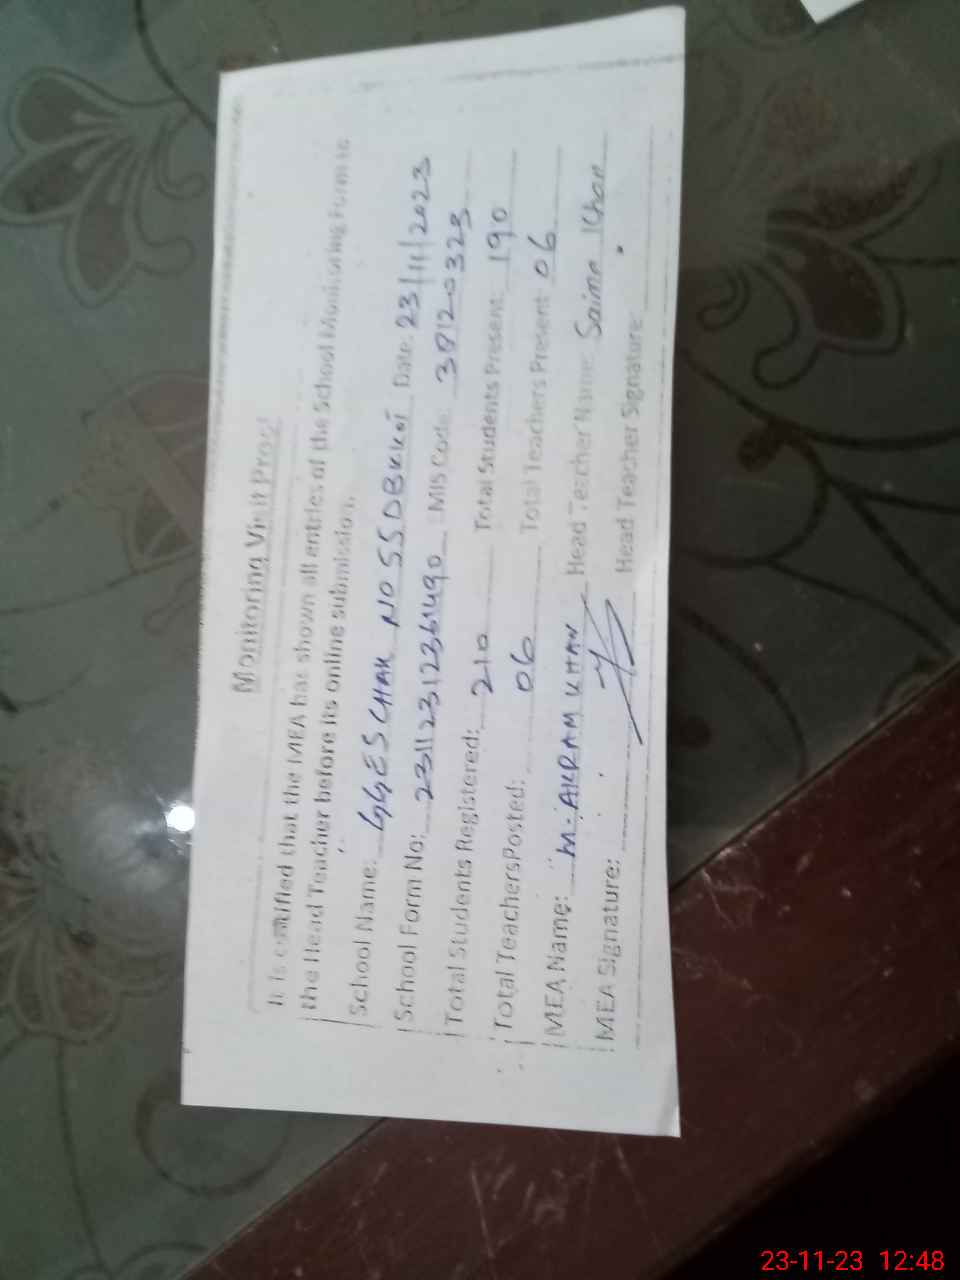 Monitoring Visit Proof
It is certified that the MEA has shown all entries of the School Monitoring Form to
the Head Teacher before its online submission.
School Name: GGES CHAK NO Date: 23/11/2023
School Form No: MIS Code: 38120323
Total Students Registered: 210 Total Students Present: 190
Total Teachers Posted: 06 Total Teachers Present: 06
MEA Name: M. AKRAM KHAN Head Teacher Name: Saima Khan
MEA Signature: Head Teacher Signature:
23-11-23 12:48